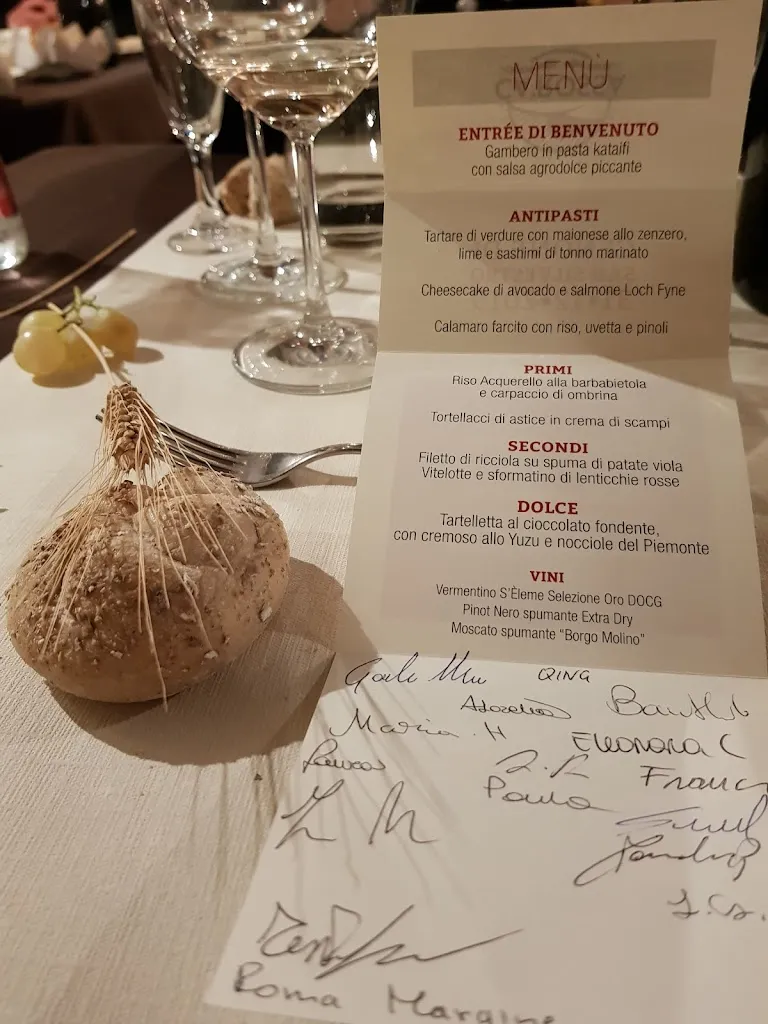 MENÙ
ENTRÉE DI BENVENUTO
Gambero in pasta kataifi
con salsa agrodolce piccante
ANTIPASTI
Tartare di verdure con maionese allo zenzero,
lime e sashimi di tonno marinato
Cheesecake di avocado e salmone Loch Fyne
Calamaro farcito con riso, uvetta e pinoli
PRIMI
Riso Acquerello alla barbabietola
e carpaccio di ombrina
Tortellacci di astice in crema di scampi
SECONDI
Filetto di ricciola su spuma di patate viola
Vitelotte e sformatino di lenticchie rosse
DOLCE
Tartelletta al cioccolato fondente,
con cremoso allo Yuzu e nocciole del Piemonte
VINI
Vermentino S'Èleme Selezione Oro DOCG
Pinot Nero spumante Extra Dry
Moscato spumante "Borgo Molino"
QING
Maria . H
Eleonora C
Franc
Paula
Roma